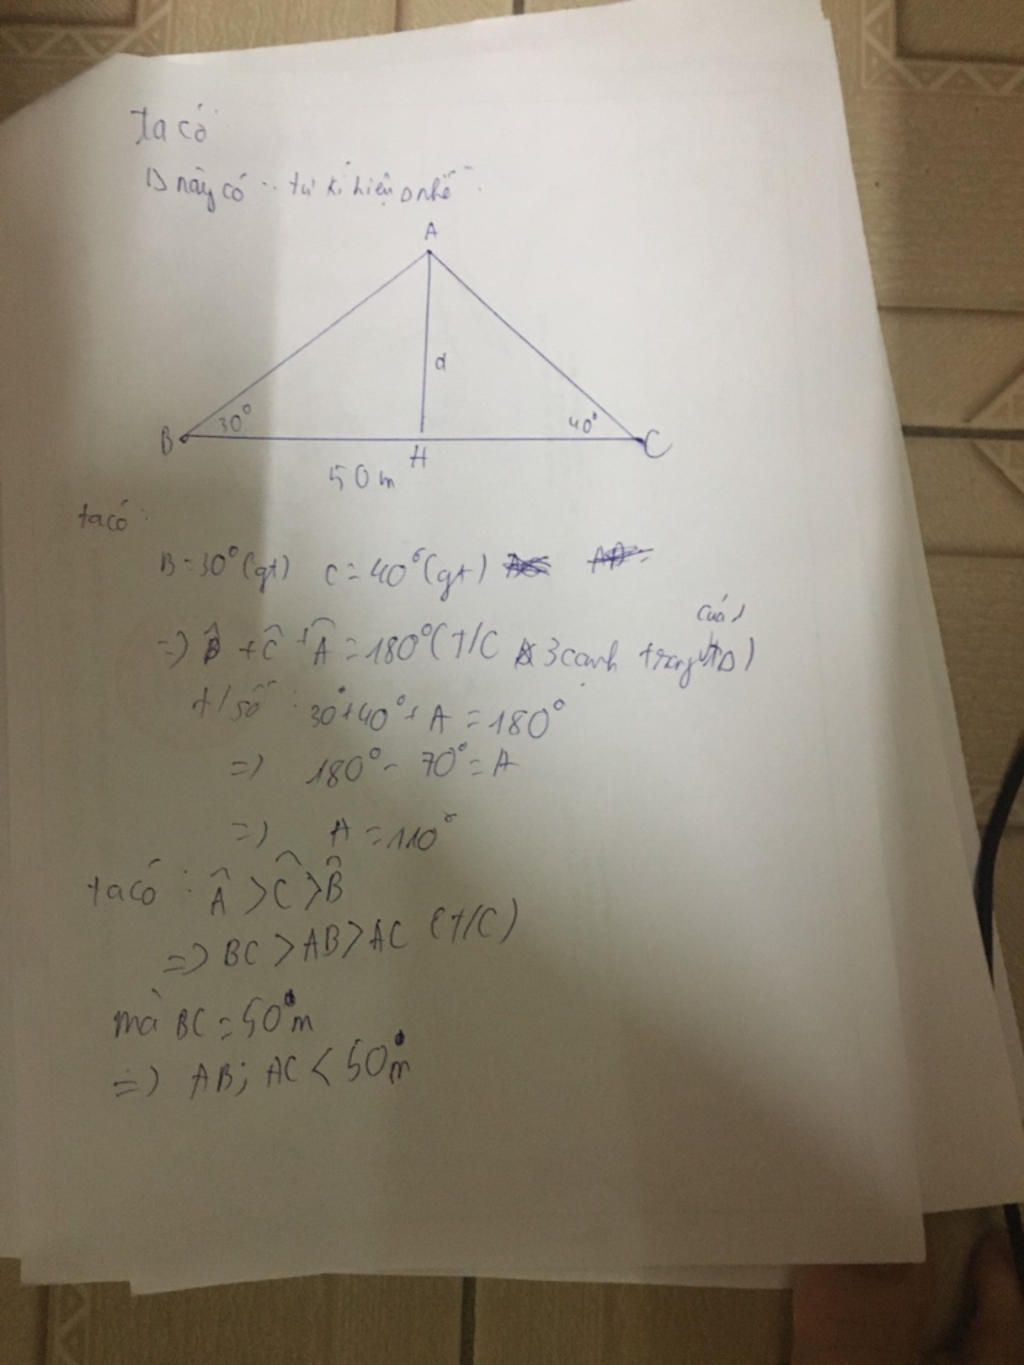 ta có
Δ này có .. tự kí hiệu Δ nhé
A
d
B
30°
40°
C
H
50m
ta có:
B = 30° (gt) C = 40° (gt)
của 1
=) B̂ + Ĉ + Â = 180° (T/C 3 cạnh trong Δ)
t/số: 30° + 40° + A = 180°
=) 180° - 70° = A
=) A = 110°
ta có: Â > Ĉ > B̂
=) BC > AB > AC (T/C)
mà BC = 50m
=) AB; AC < 50m